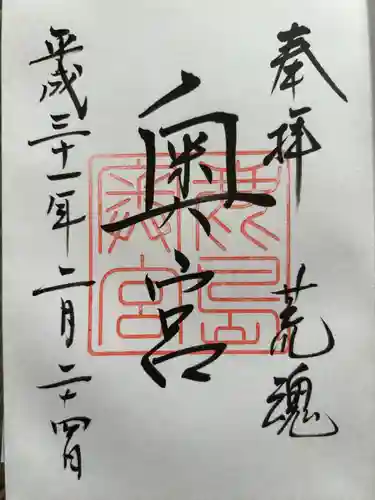 奉拝 荒魂
奥宮
平成三十一年二月二十四日